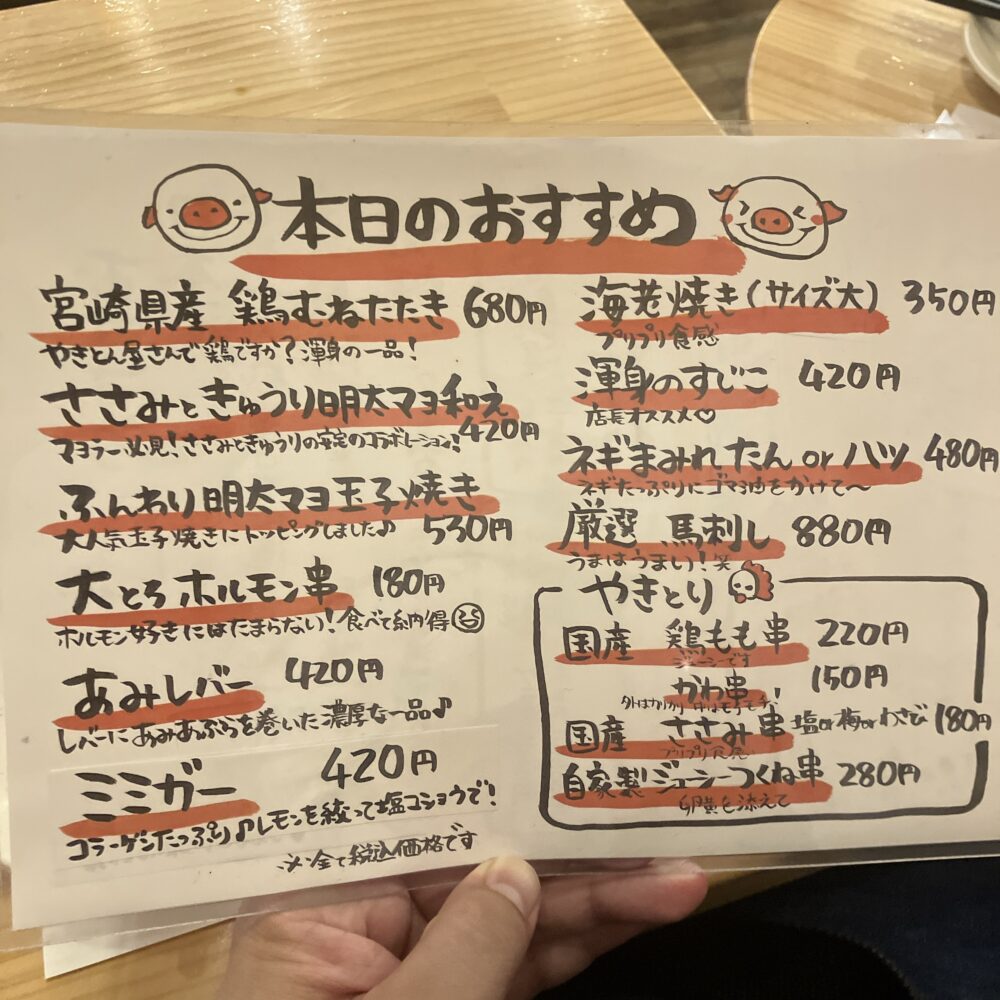 本日のおすすめ
宮崎県産 鶏むねたたき 680円
やきとん屋さんで鶏ですか?渾身の一品!
ささみときゅうり明太マヨ和え
マヨラー必見!ささみときゅうりの安定のコラボレーション! 420円
ふんわり明太マヨ玉子焼き
大人気玉子焼きにトッピングしました♪ 530円
大とろホルモン串 180円
ホルモン好きにはたまらない!食べて納得
あみレバー 420円
レバーにあみあぶらを巻いた濃厚な一品♪
ミミガー 420円
コラーゲンたっぷり♪レモンを絞って塩コショウで!
※全て税込価格です
海老焼き(サイズ大) 350円
プリプリ食感
渾身のすじこ 420円
店長オススメ♡
ネギまみれたんorハツ 480円
ネギたっぷりにゴマ油をかけて〜
厳選 馬刺し 880円
うまはうまい!笑
やきとり
国産 鶏もも串 220円
ジューシーです
かわ串 150円
外はカリカリ 中はモチモチ!
国産 ささみ串 塩or梅orわさび 180円
プリプリ食感
自家製ジューシーつくね串 280円
卵黄を添えて